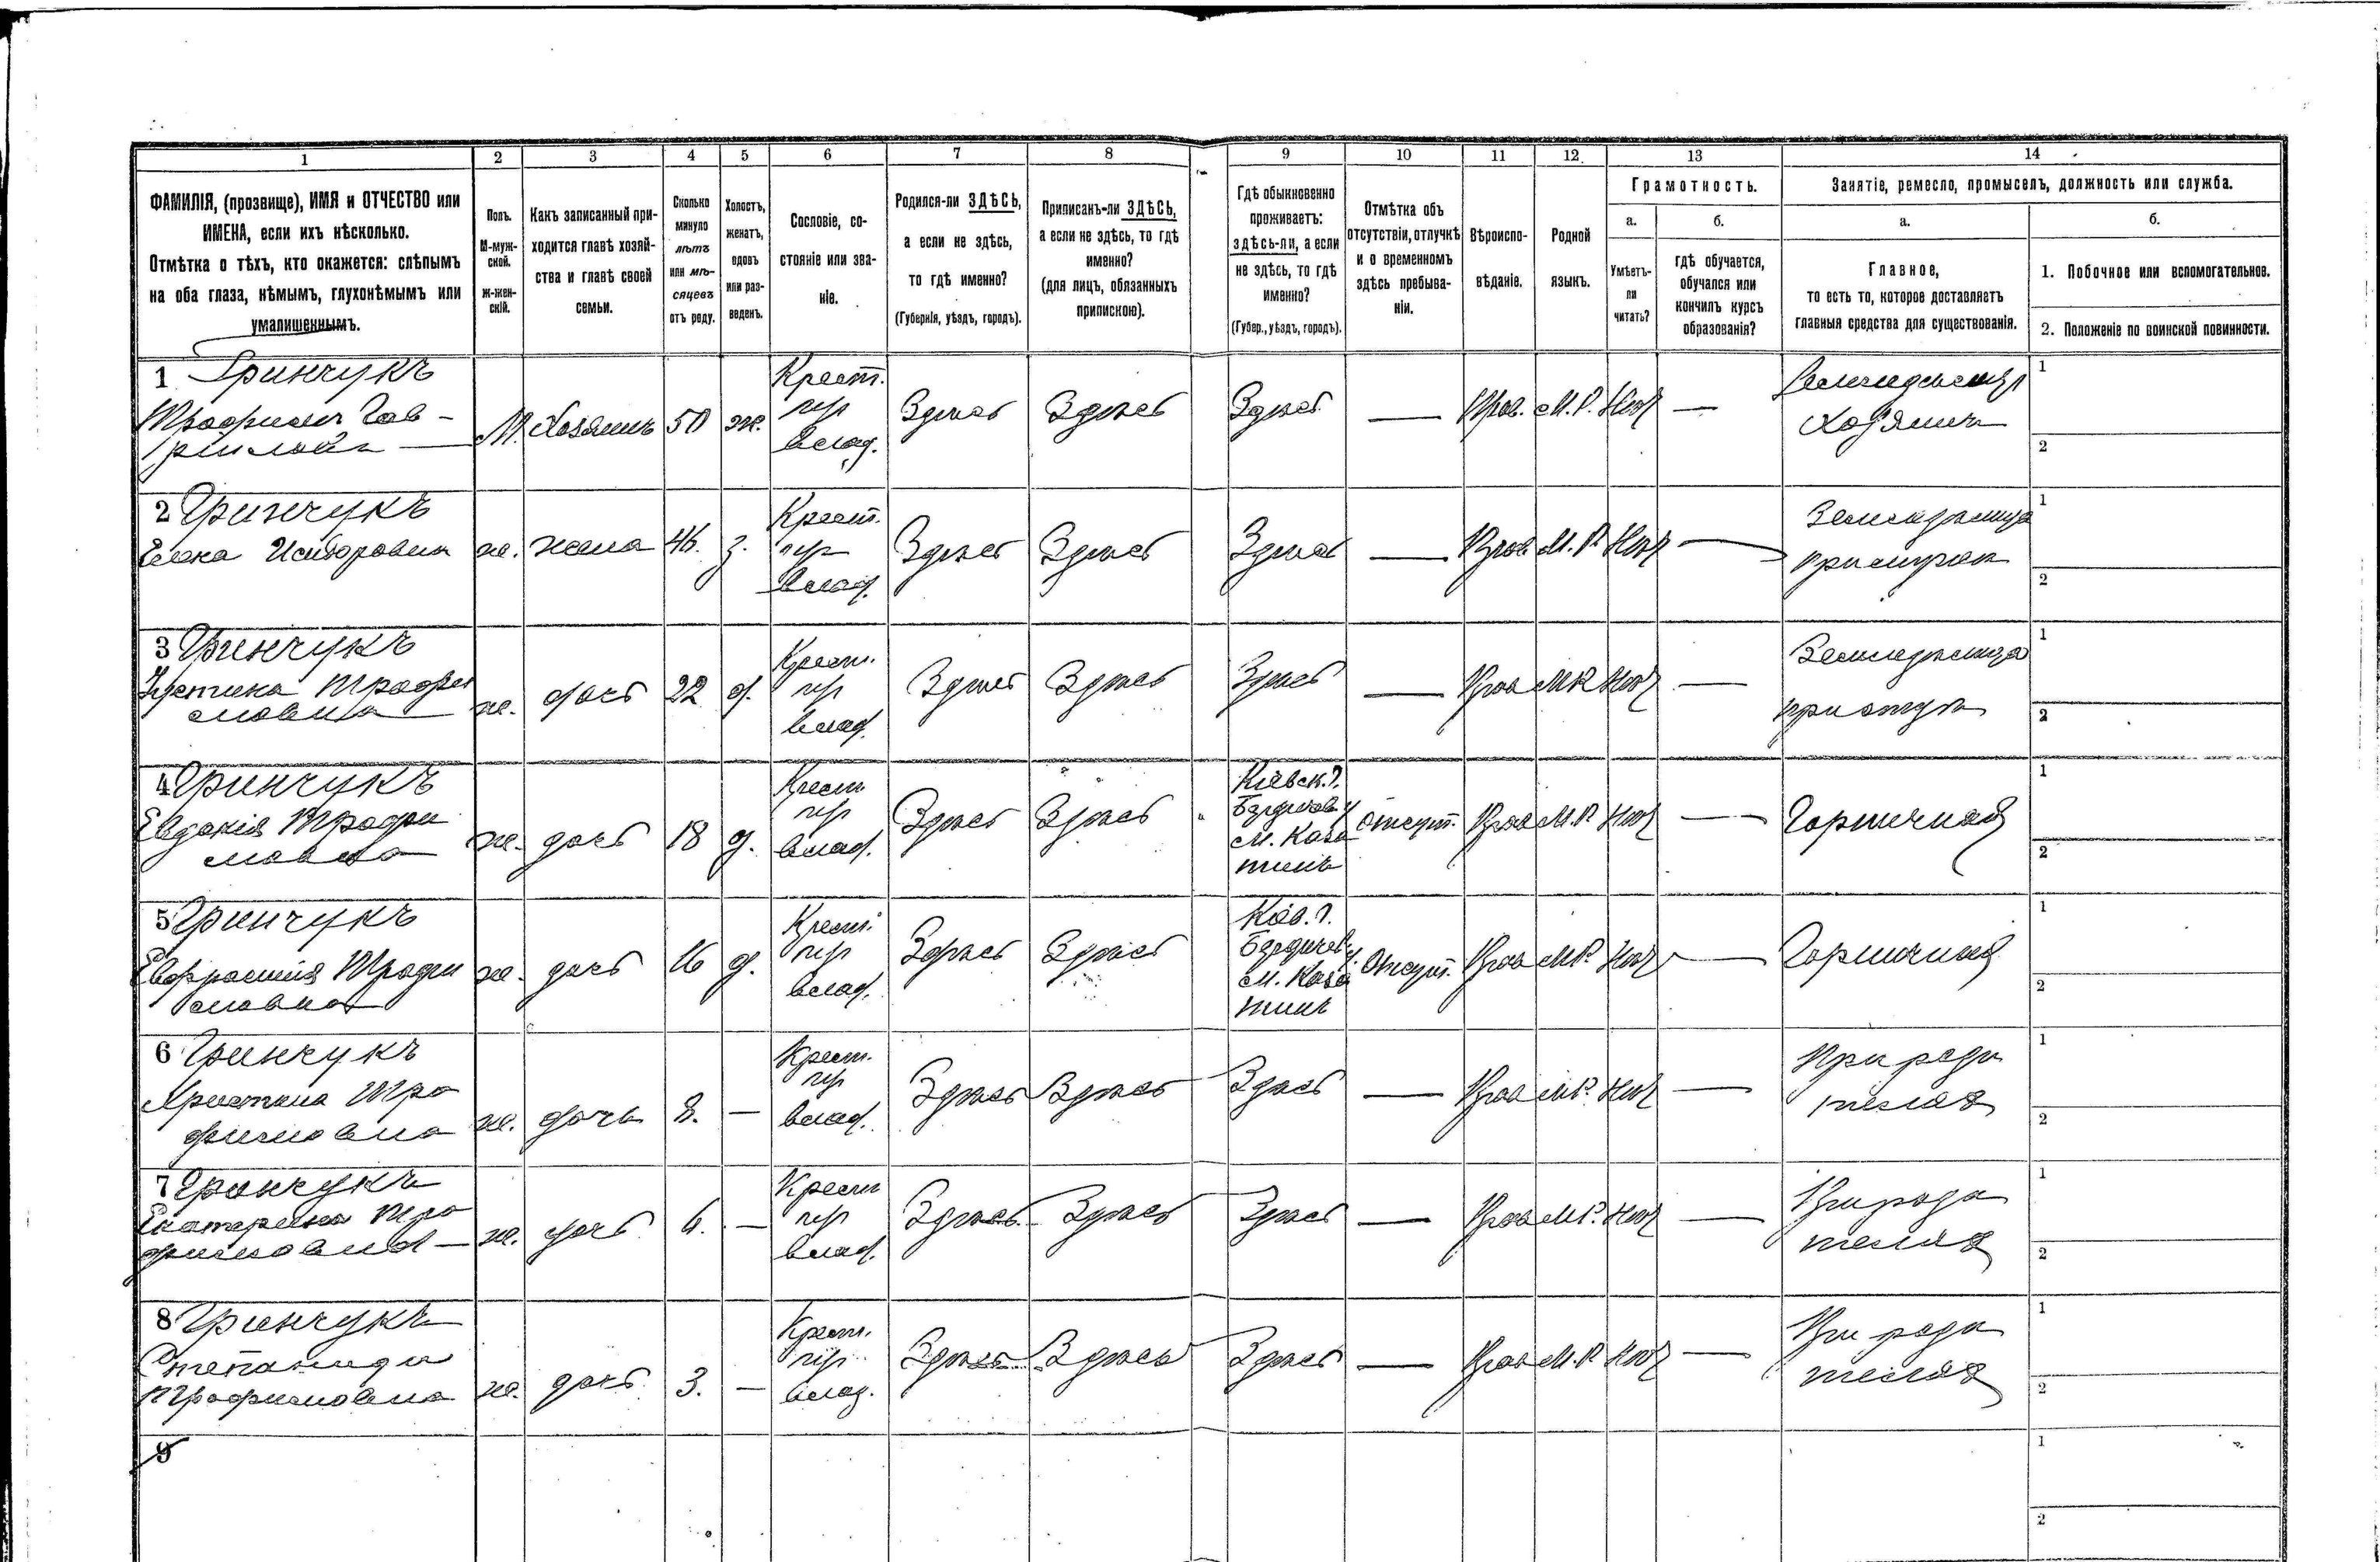 1 2 3 4 5 6 7 8 9 10 11 12 13 14
ФАМИЛІЯ, (прозвище), ИМЯ и ОТЧЕСТВО или
ИМЕНА, если ихъ нѣсколько.
Отмѣтка о тѣхъ, кто окажется: слѣпымъ
на оба глаза, нѣмымъ, глухонѣмымъ или
умалишеннымъ.
Полъ.
М-муж-
ской.
Ж-жен-
скій.
Какъ записанный при-
ходится главѣ хозяй-
ства и главѣ своей
семьи.
Сколько
минуло
лѣтъ
или мѣ-
сяцевъ
отъ роду.
Холостъ,
женатъ,
вдовъ
или раз-
веденъ.
Сословіе, со-
стояніе или зва-
ніе.
Родился-ли ЗДѢСЬ,
а если не здѣсь,
то гдѣ именно?
(Губернія, уѣздъ, городъ).
Приписанъ-ли ЗДѢСЬ,
а если не здѣсь, то гдѣ
именно?
(для лицъ, обязанныхъ
припискою).
Гдѣ обыкновенно
проживаетъ:
здѣсь-ли, а если
не здѣсь, то гдѣ
именно?
(Губер., уѣздъ, городъ).
Отмѣтка объ
отсутствіи, отлучкѣ
и о временномъ
здѣсь пребыва-
ніи.
Вѣроиспо-
вѣданіе.
Родной
языкъ.
Грамотность.
а.
Умѣетъ-
ли
читать?
б.
гдѣ обучается,
обучался или
кончилъ курсъ
образованія?
Занятіе, ремесло, промыселъ, должность или служба.
а.
Главное,
то есть то, которое доставляетъ
главныя средства для существованія.
б.
1. Побочное или вспомогательное.
2. Положеніе по воинской повинности.
1 Гринчукъ
Трофимъ Гав-
риловъ
М. Хозяинъ 50 ж.
Крест.
влад.
Здѣсь Здѣсь Здѣсь — Прав. М.Р. —
Хозяинъ
1
2
2 Гринчукъ
Елена Исидоровна
ж. жена 46. з.
Крест.
влад.
Здѣсь Здѣсь Здѣсь — Прав. М.Р. —
1
2
3 Гринчукъ
Устина Трофи
мовна
ж. дочь 22 д.
Крест.
влад.
Здѣсь Здѣсь Здѣсь — Прав М.Р. —
1
2
4 Гринчукъ
Евдокія Трофи
мовна
ж. дочь 18 д.
Крест
влад.
Здѣсь Здѣсь
Кіевск. г.
Бердичев. у
м. Каза
тинъ
отсут. Прав М.Р. —
Горничная
1
2
5 Гринчукъ
Евфросинія Трофи
мовна
ж. дочь 16 д.
Крест.
влад.
Здѣсь Здѣсь
Кіев. г.
Бердичев. у.
м. Каза
тинъ
Отсут. Прав М.Р. —
Горничная
1
2
6 Гринчукъ
Христина Тро
фимовна
ж. дочь 8. —
Крест.
влад.
Здѣсь Здѣсь Здѣсь — Прав М.Р. —
При роди
теляхъ
1
2
7 Гринчукъ
Екатерина Тро
фимовна
ж. дочь 6. —
Крест
влад.
Здѣсь Здѣсь Здѣсь — Прав М.Р. —
При роди
теляхъ
1
2
8 Гринчукъ
Степанида
Трофимовна
ж. дочь 3. —
Крест.
влад.
Здѣсь Здѣсь Здѣсь — Прав М.Р. —
При роди
теляхъ
1
2
9
1
2